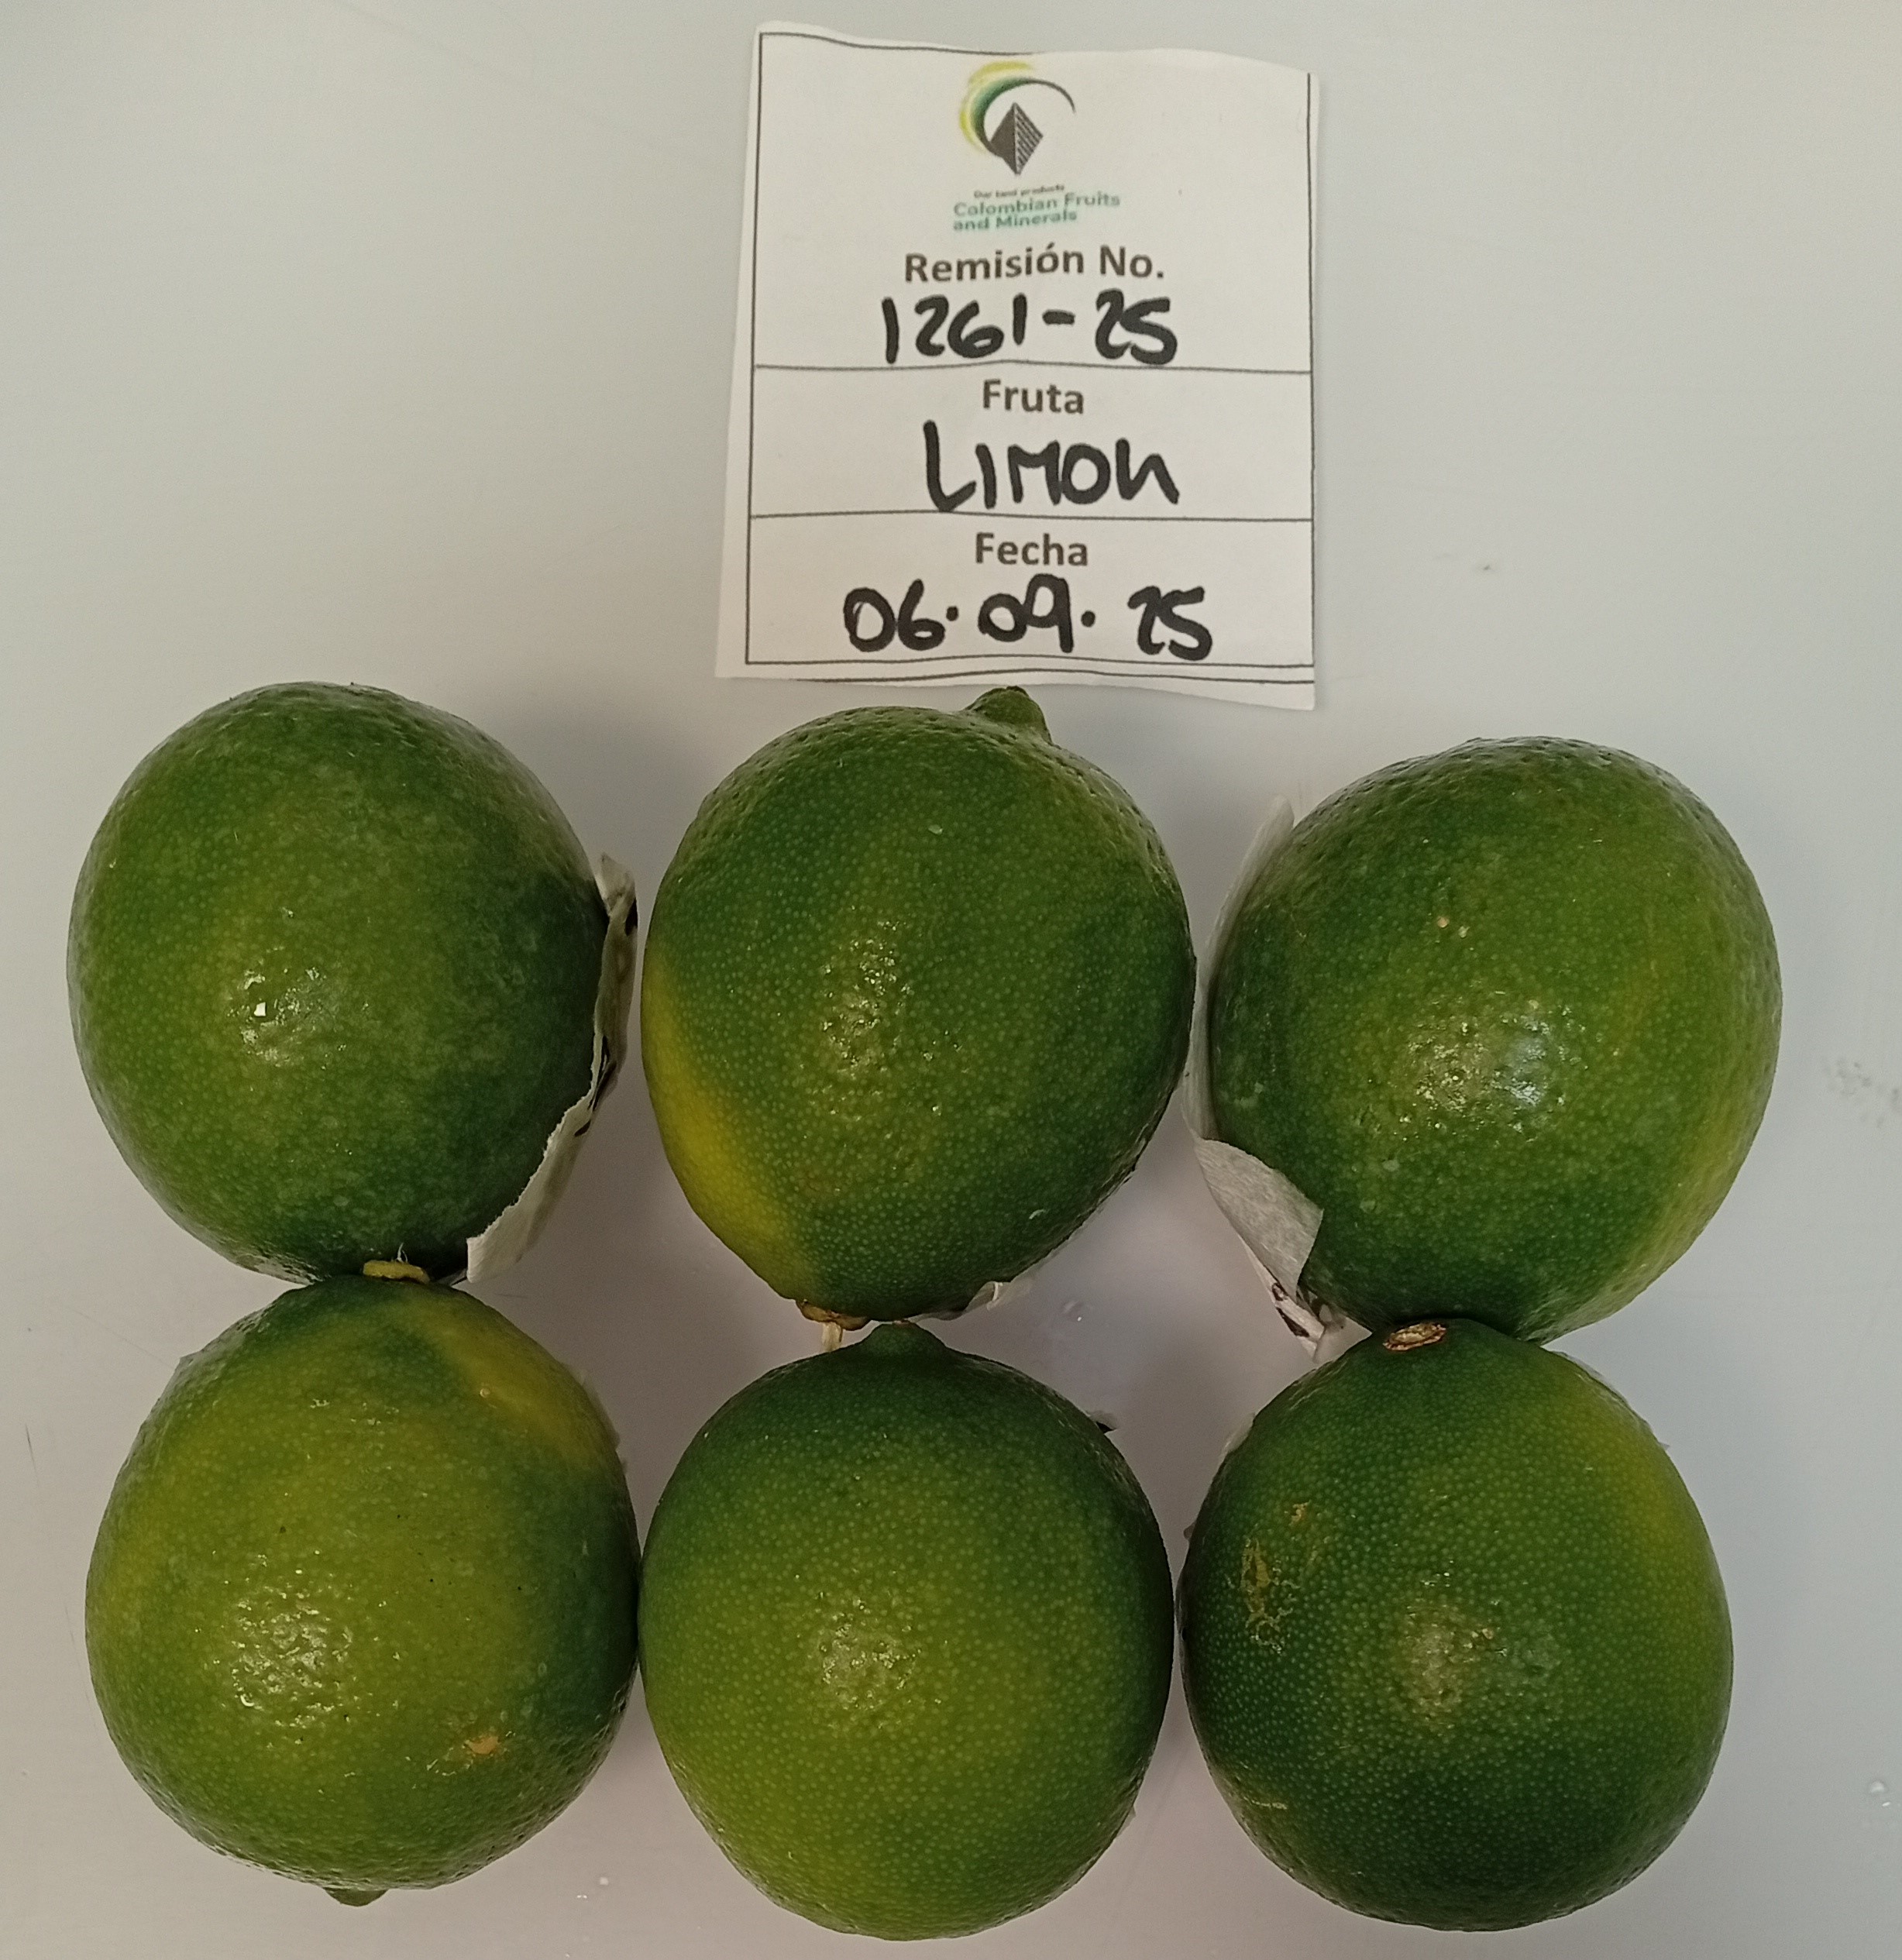 Our land products
Colombian Fruits
and Minerals
Remisión No.
1261-25
Fruta
LIMON
Fecha
06.09.25